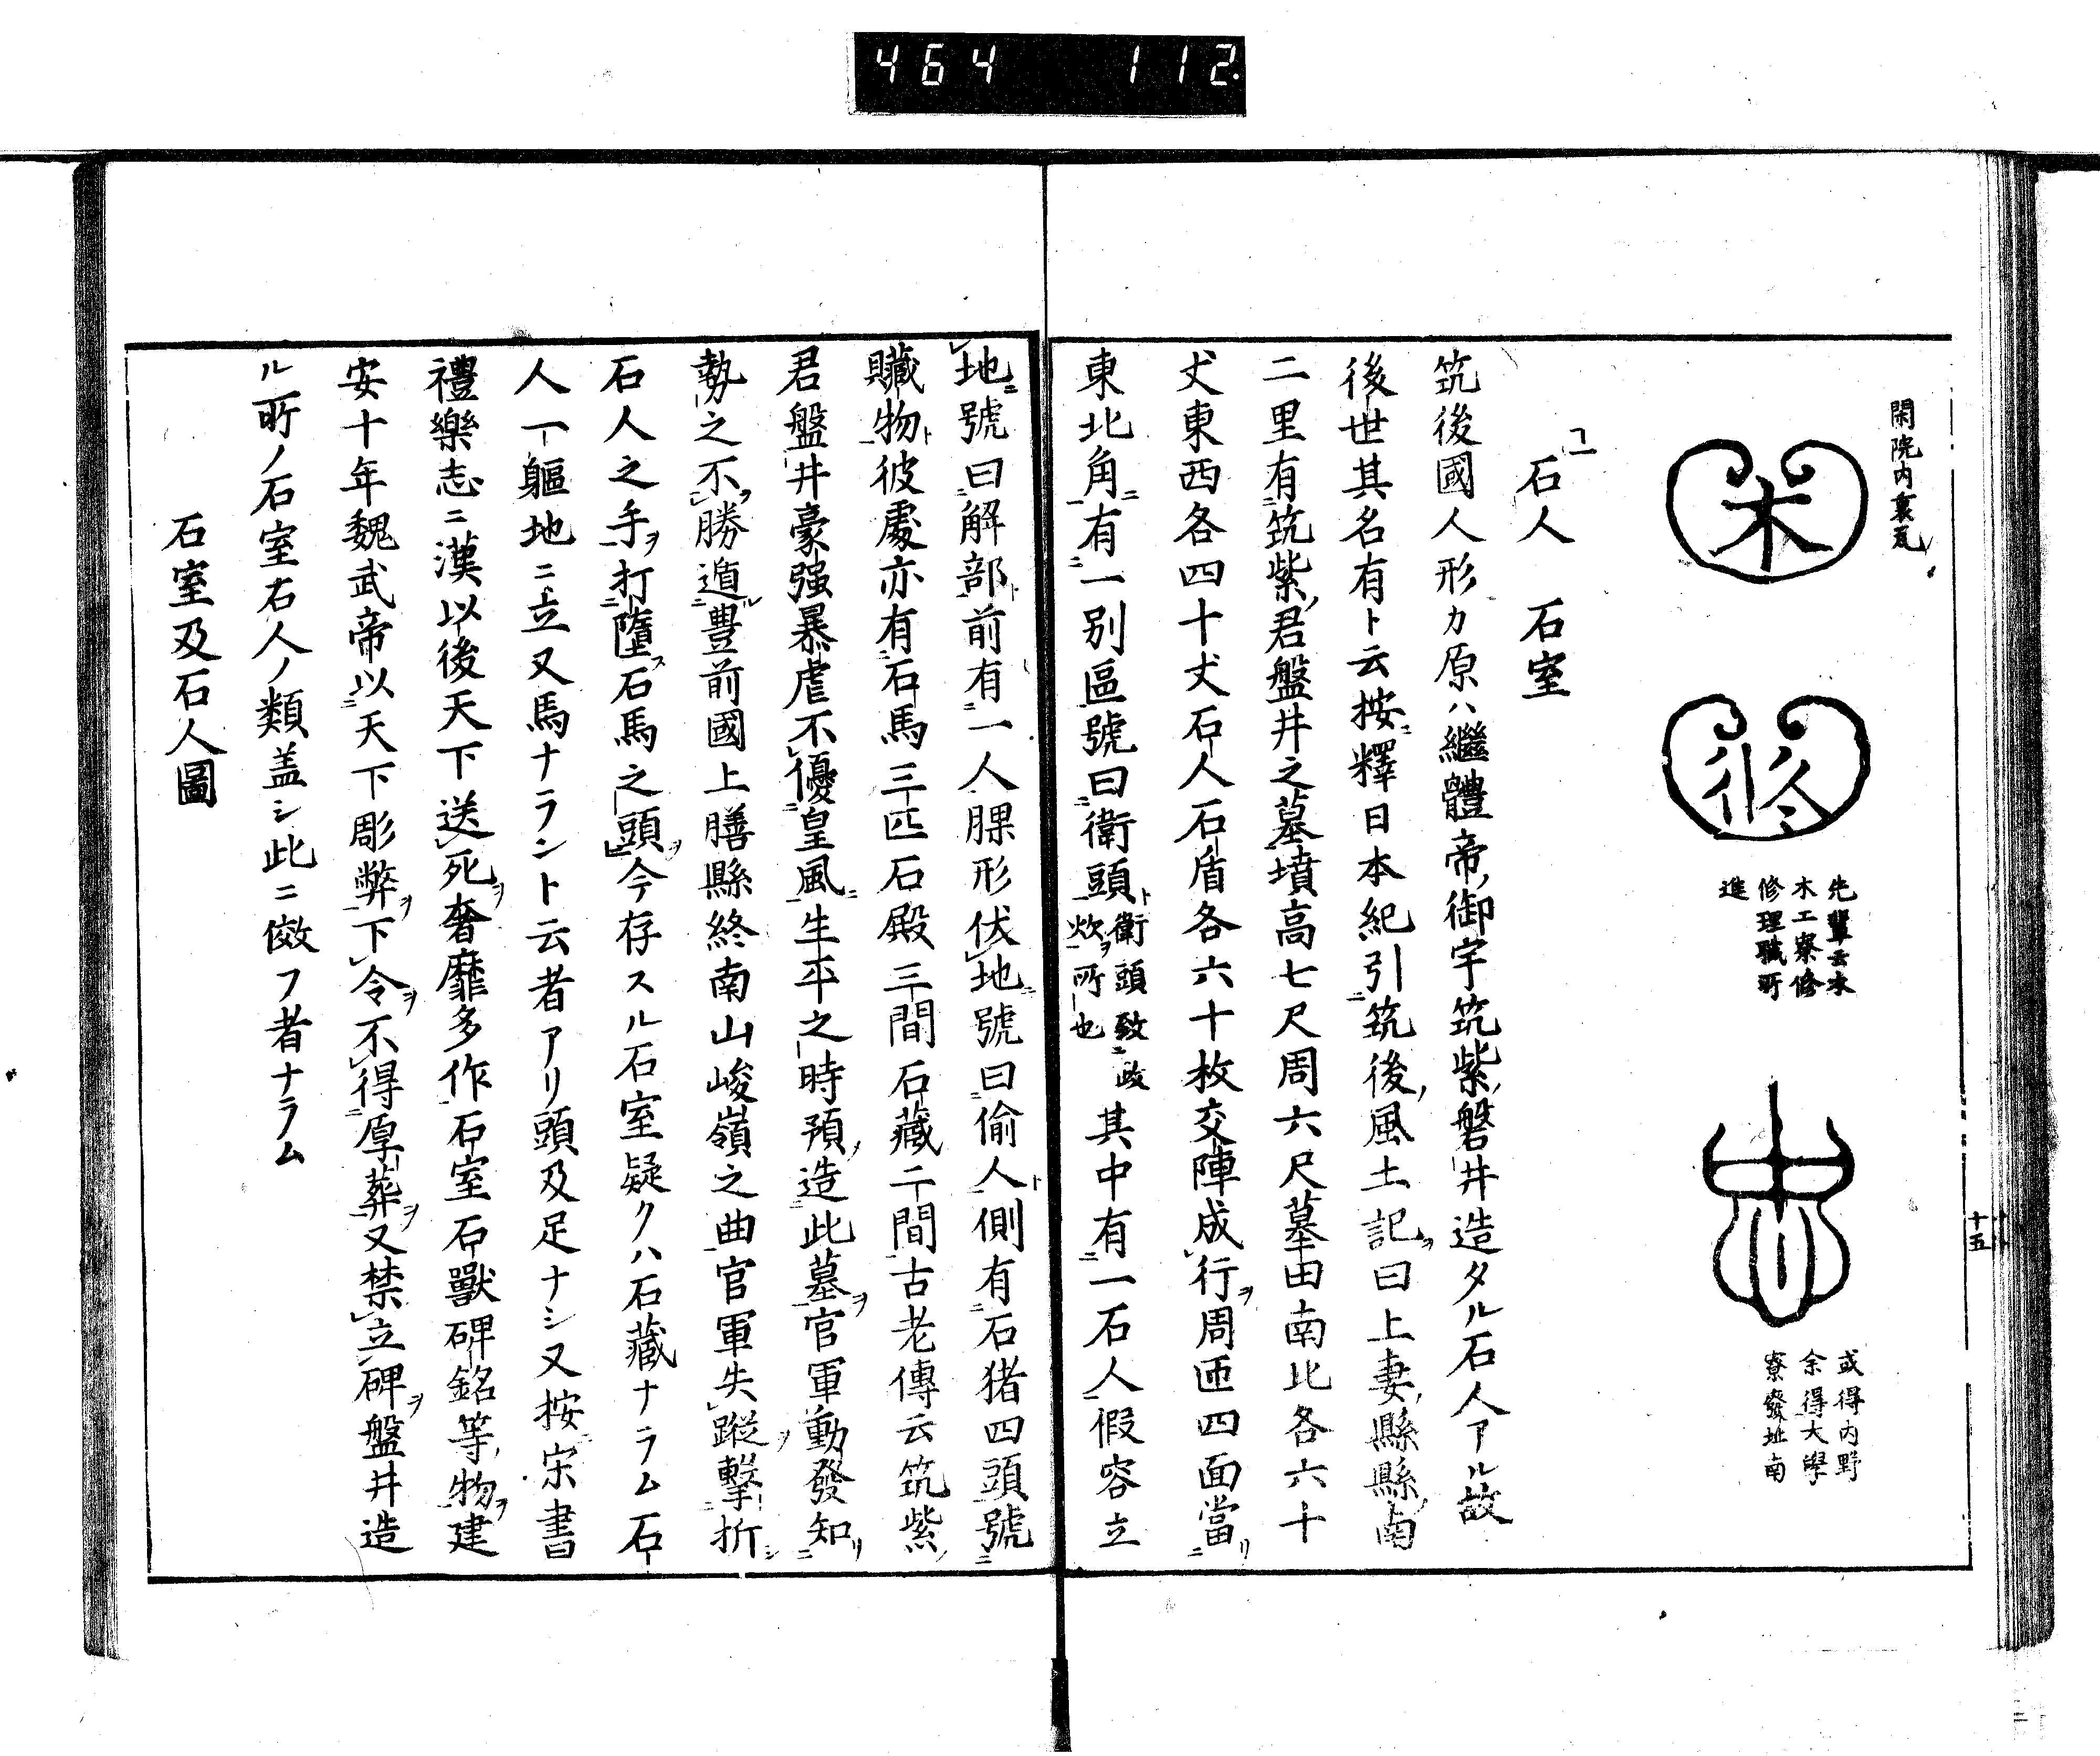 464 112
閑院内裏瓦
木
修
先輩云木
木工寮修
修理職所
進
或得内野
余得大學
寮廢址南
十五
石人 石室
筑後國人形カ原ハ繼體帝御宇筑紫磐井造タル石人アル故
後世其名有ト云按釋日本紀引筑後風土記曰上妻縣縣南
二里有筑紫君盤井之墓墳高七尺周六尺墓田南北各六十
丈東西各四十丈石人石盾各六十枚交陣成行周匝四面當
東北角有一別區號曰衛頭衛頭致政炊所也其中有一石人假容立
地號曰解部前有一人臝形伏地號曰偷人側有石猪四頭號
贓物彼處亦有石馬三匹石殿三間石藏二間古老傳云筑紫
君盤井豪强暴虐不優皇風生平之時預造此墓官軍動發知
勢之不勝遁豊前國上膳縣終南山峻嶺之曲官軍失蹤擊折
石人之手打墮石馬之頭今存スル石室疑クハ石藏ナラム石
人一軀地ニ立又馬ナラントト云者アリ頭及足ナシ又按宋書
禮樂志ニ漢以後天下送死奢靡多作石室石獸碑銘等物建
安十年魏武帝以天下彫弊下令不得厚葬又禁立碑盤井造
ル所ノ石室石人ノ類盖シ此ニ倣フ者ナラム
石室及石人圖